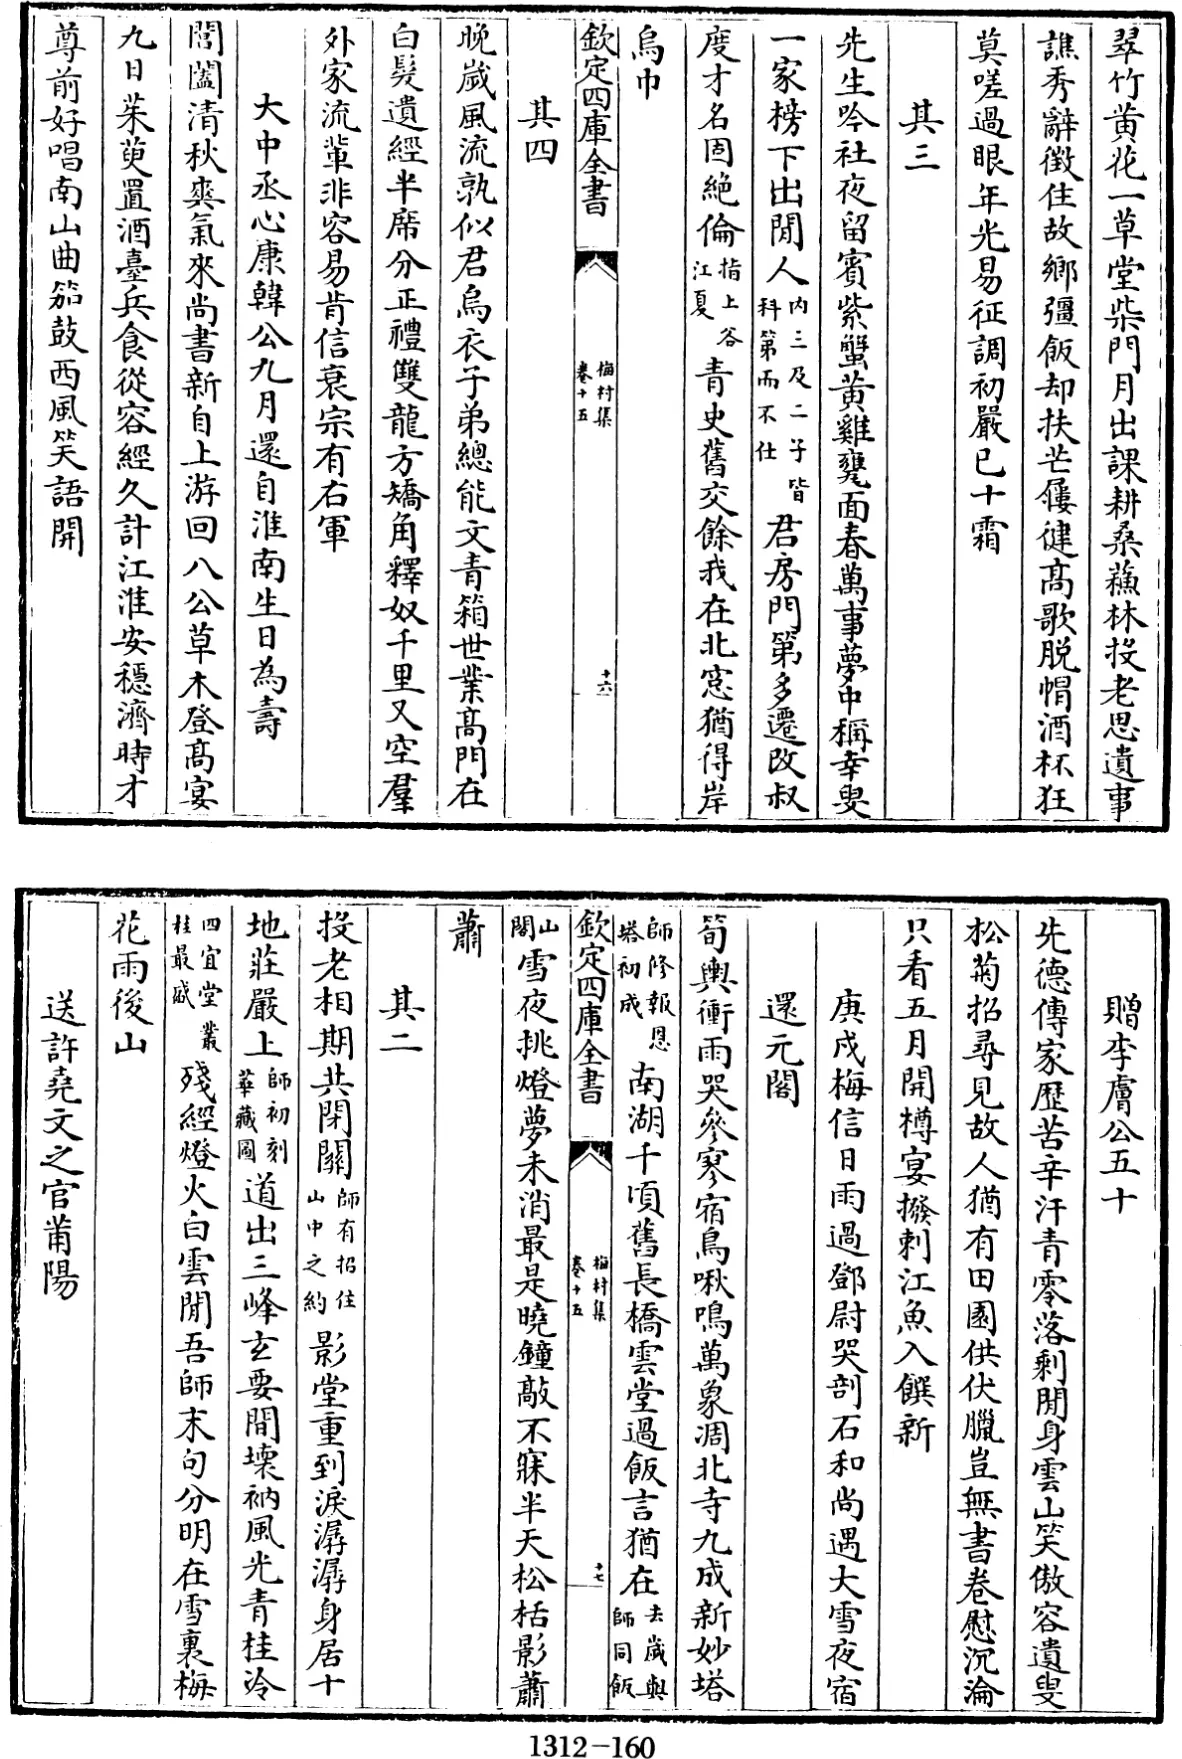 翠竹黄花一草堂柴門月出課耕桑蘓林投老思遺事
譙秀辭徴住故鄉彊飯却扶芒屩健高歌脱帽酒杯狂
莫嗟過眼年光易征調初嚴已十霜
其三
先生吟社夜留賓紫蟹黄雞甕面春萬事夢中稱幸叟
一家榜下出閒人内三及二子皆科第而不仕君房門第多遷改叔
度才名固絶倫指上谷江夏青史舊交餘我在北窓猶得岸
烏巾
欽定四庫全書
梅村集
卷十五
十六
其四
晚嵗風流孰似君烏衣子弟總能文青箱世業髙門在
白髮遺經半席分正禮雙龍方矯角釋奴千里又空羣
外家流輩非容易肯信衰宗有右軍
大中丞心康韓公九月還自淮南生日為壽
閶闔清秋爽氣來尚書新自上游回八公草木登髙宴
九日茱萸置酒臺兵食從容經久計江淮安穏濟時才
尊前好唱南山曲笳鼓西風笑語開
贈李膚公五十
先德傳家歴苦辛汗青零落剩閒身雲山笑傲容遺叟
松菊招尋見故人猶有田園供伏臘豈無書卷慰沉淪
只看五月開樽宴撥剌江魚入饌新
庚戌梅信日雨過鄧尉哭剖石和尚遇大雪夜宿
還元閣
筍輿衝雨哭參寥宿鳥啾鳴萬象凋北寺九成新妙塔
師修報恩塔初成南湖千頃舊長橋雲堂過飯言猶在去嵗與師同飯
欽定四庫全書
梅村集
卷十五
十七
山閣雪夜挑燈夢未消最是曉鐘敲不寐半天松栝影蕭
蕭
其二
投老相期共閉關師有招住山中之約影堂重到淚潺潺身居十
地莊嚴上師初刻華藏圖道出三峰玄要間壊衲風光青桂冷
四宜堂叢桂最盛殘經燈火白雲閒吾師末句分明在雪裏梅
花雨後山
送許堯文之官莆陽
1312-160